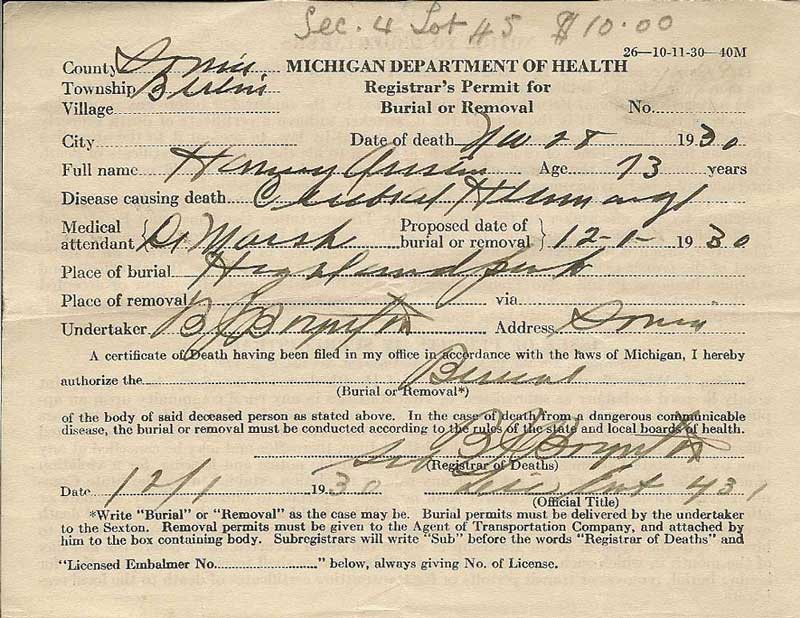 Sec. 4 Lot 45 $10.00
26—10-11-30—40M
County Ionia MICHIGAN DEPARTMENT OF HEALTH
Township Berlin Registrar's Permit for
Village Burial or Removal No.
City Date of death Nov 28 1930
Full name Age 73 years
Disease causing death Cerebral
Medical attendant Dr Marsh Proposed date of burial or removal 12-1- 1930
Place of burial Highland park
Place of removal via
Undertaker B Boynton Address Ionia
A certificate of Death having been filed in my office in accordance with the laws of Michigan, I hereby
authorize the Burial
(Burial or Removal*)
of the body of said deceased person as stated above. In the case of death from a dangerous communicable
disease, the burial or removal must be conducted according to the rules of the state and local boards of health.
Sub B Boynton
(Registrar of Deaths)
Date 12/1 1930 431
(Official Title)
*Write "Burial" or "Removal" as the case may be. Burial permits must be delivered by the undertaker
to the Sexton. Removal permits must be given to the Agent of Transportation Company, and attached by
him to the box containing body. Subregistrars will write "Sub" before the words "Registrar of Deaths" and
"Licensed Embalmer No. " below, always giving No. of License.